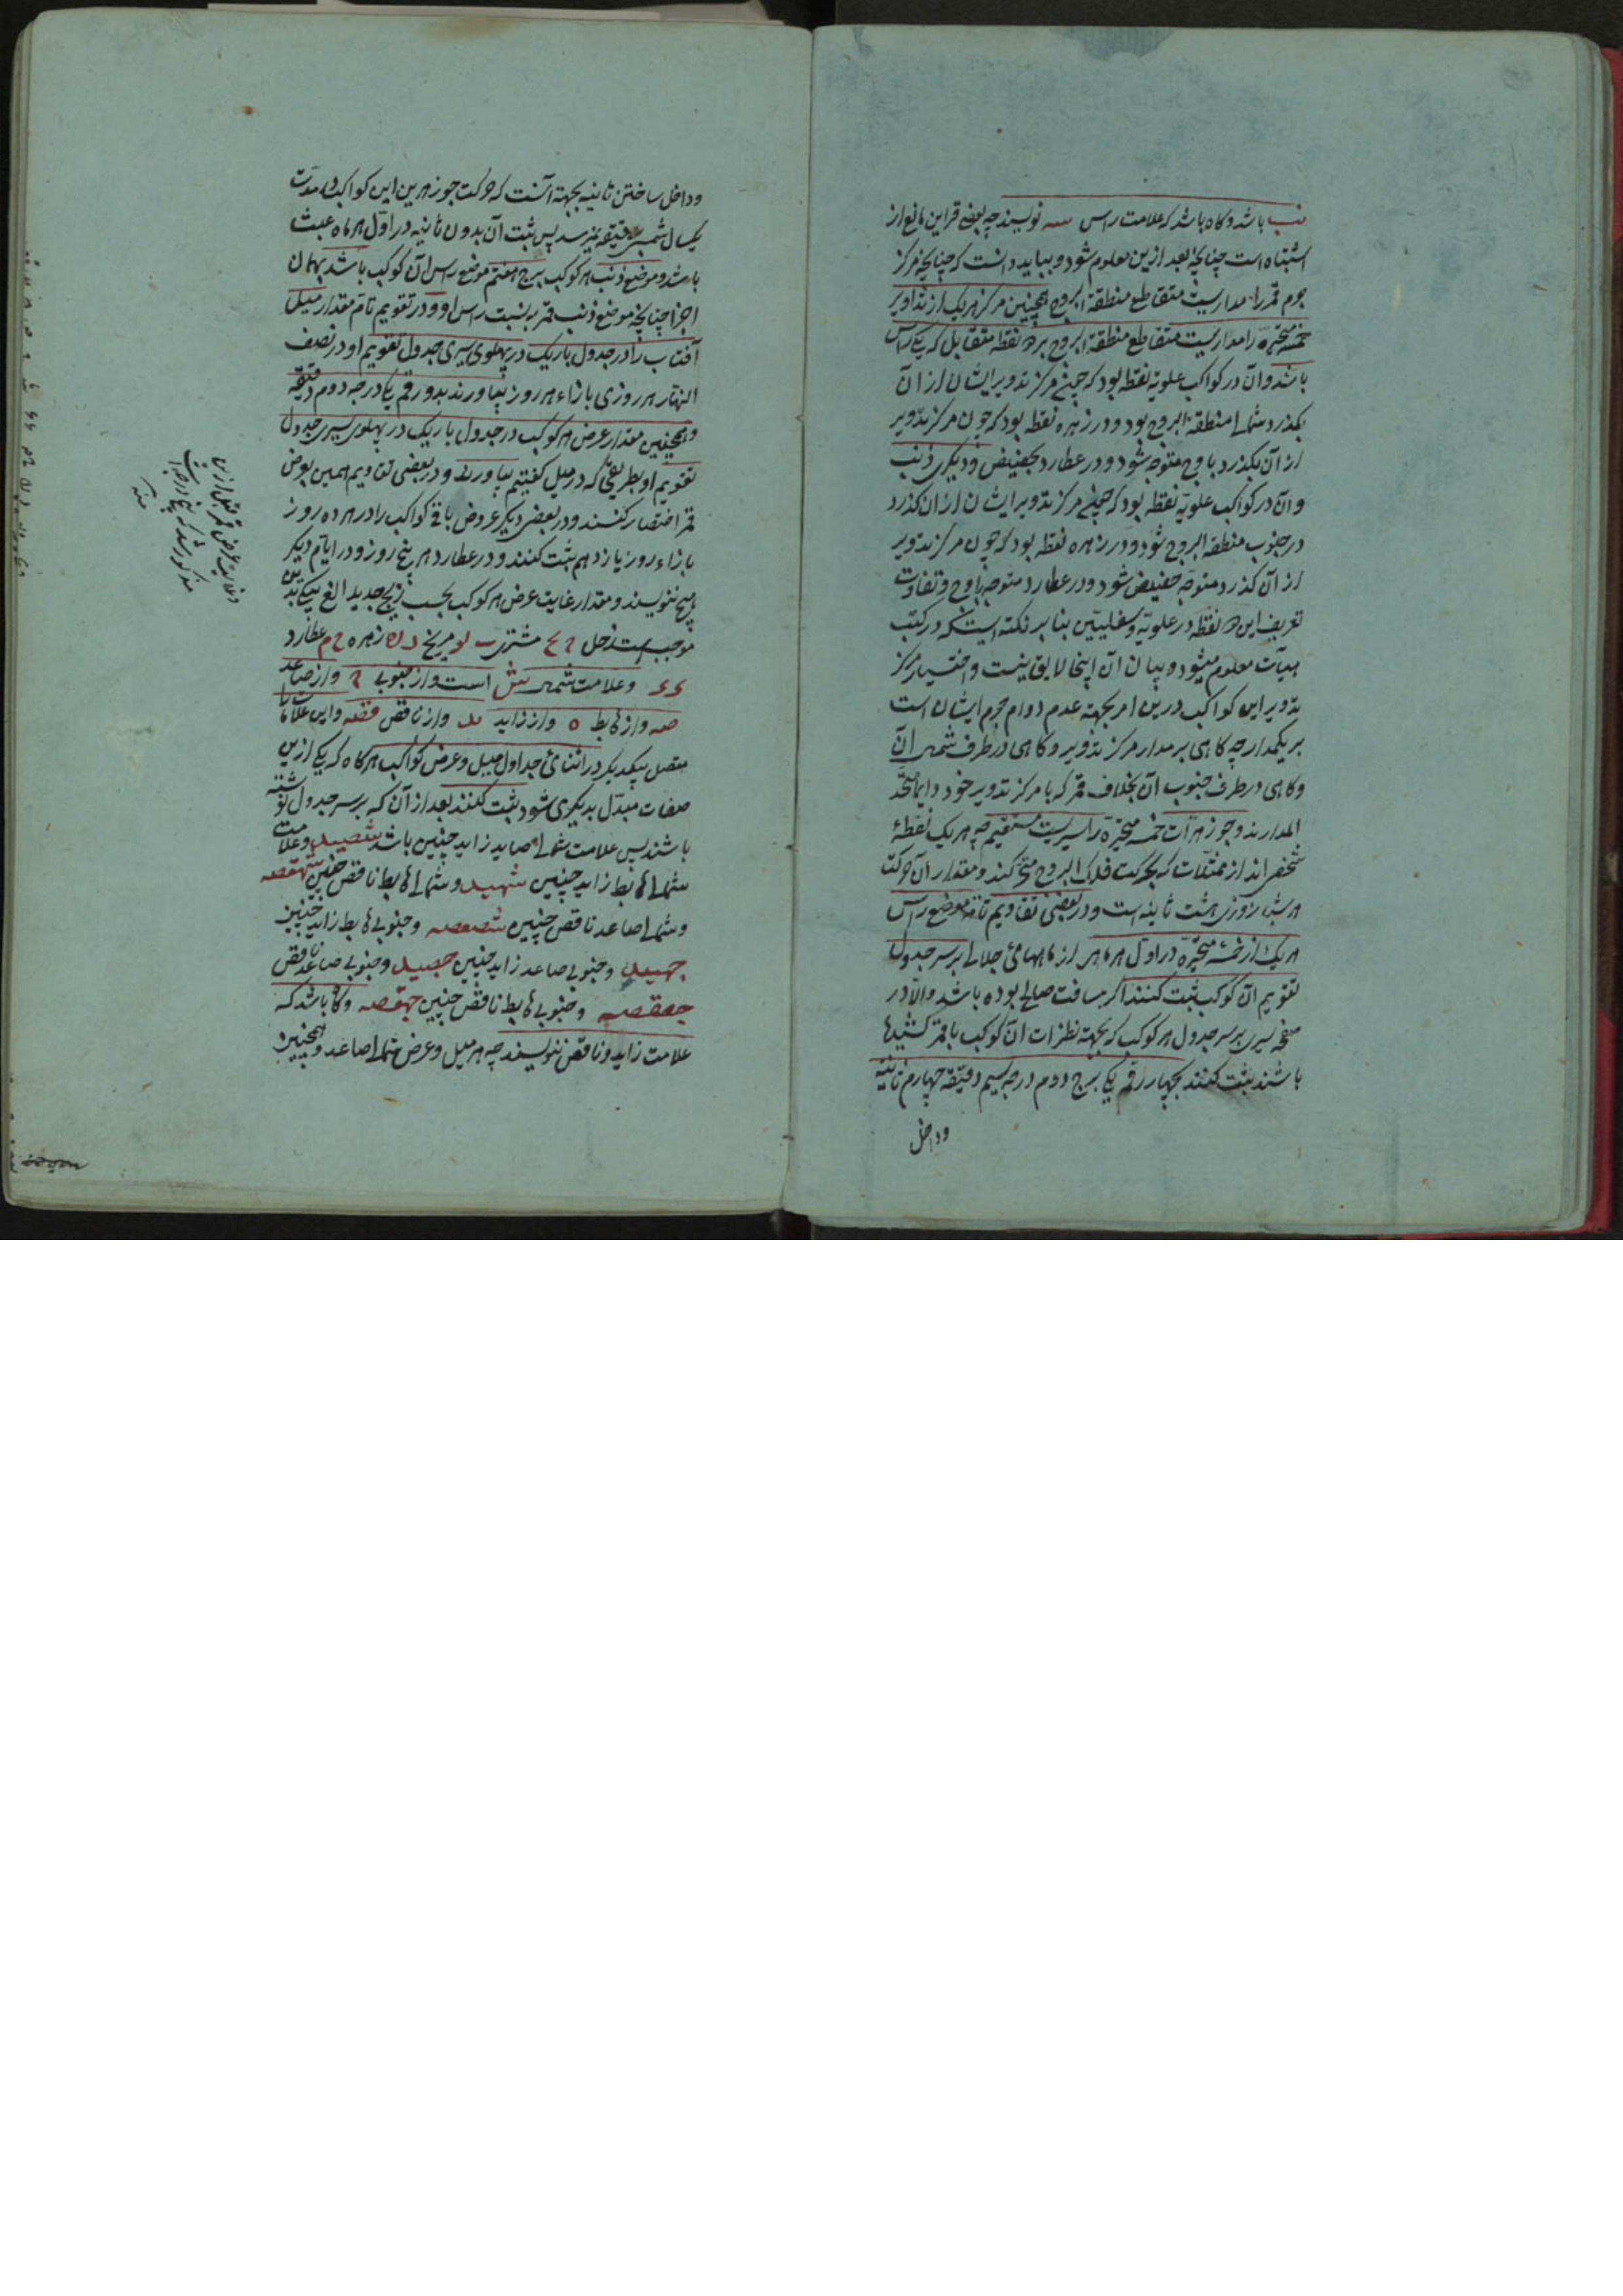 نب باشد و گاه باشد که علامت راس سه نویسند چه بعضی قراین مانع از
اشتباه است چنانچه بعد ازین معلوم شود و بباید دانست که چنانچه مرکز
جرم قمر را مداریست متقاطع منطقة البروج همچنین مرکز هر یک از تداویر
خمسه متحیره را مداریست متقاطع منطقة البروج بر دو نقطه متقابل که یکی راس
باشد و آن در کواکب علویه نقطه بود که چون مرکز تدویر ایشان از آن
بگذرد شمالی منطقة البروج بود و در زهره نقطه بود که چون مرکز تدویر
از آن بگذرد باوج متوجه شود و در عطارد بحضیض و دیگری ذنب
و آن در کواکب علویه نقطه بود که چون مرکز تدویر ایشان از ان گذرد
در جنوب منطقة البروج شود و در زهره نقطه بود که چون مرکز تدویر
از آن گذرد متوجه حضیض شود و در عطارد متوجه باوج و تفاوت
تعریف این دو نقطه در علویه و سفلیین بنا بر نکته ایست که در کتب
هیآت معلوم میشود و بیان آن اینجا لایق نیست و اختیار مرکز
تدویر این کواکب درین امر بجهة عدم دوام جرم ایشان است
بر یکمدار چه کاهی بر مدار مرکز تدویر و کاهی در طرف شمال آن
و کاهی در طرف جنوب آن بخلاف قمر که با مرکز تدویر خود دایما متحد
المدارند و جوزهرات خمسه متحیره را سیریست مستقیم چه هر یک نقطهٔ
شخص اند از ممثلات که بحرکت فلک البروج متحرکند و مقدار آن حرکت
هر شبانروزی هشت ثالثه است و در بعضی تقاویم تامه موضع راس
هر یک از خمسه متحیره در اول هر ماهی از ماههای جلالی بر سر جدول
تقویم آن کوکب ثبت کنند اگر مسافت صالح بوده باشد والا در
صفحه یسری بر سر جدول هر کوکب که بجهة نظرات آن کوکب با قمر کشیدها
باشند ثبت کنند بچهار رقم یکی برج دوم درجه سیم دقیقه چهارم ثانیه
و داخل
و داخل ساختن ثانیه بجهة آنست که حرکت جوزهرین این کواکب در مدت
یکسال شمسی بدقیقه نمیرسد پس ثبت آن بدون ثانیه در اول هر ماه عبث
باشد و موضع ذنب هر کوکب ببرج هفتم موضع راس آن کوکب باشد بهمان
اجزا چنانچه موضع ذنب قمر به نسبت راس او و در تقویم تام مقدار میل
آفتاب را در جدول باریک در پهلوی یسری جدول تقویم او در نصف
النهار هر روزی بازاء هر روز بیاورند بدو رقم یکی درجه دوم دقیقه
و همچنین مقدار عرض هر کوکب در جدول باریک در پهلوی یسری جدول
تقویم او بطریقی که در میل گفتیم بیاورند و در بعضی تقاویم همین بعرض
قمر اختصار کنند و در بعضی دیگر عروض باقی کواکب را در هر ده روز
بازاء روز یازدهم ثبت کنند و در عطارد هر پنج روز و در ایام دیگر
هیچ ننویسند و مقدار غایت عرض هر کوکب بحسب زیج جدید الغ بیکی بدین
موجب است زحل مشتری مریخ زهره عطارد
و علامت شمالی ش است و از جنوبی ج و از صاعد
صه و از هابط ه و از زاید و از ناقص قصه و این علامات را
متصل بیکدیگر در اثنای جداول میل و عرض کواکب هرگاه که یکی ازین
صفات مبدل بدیگری شود ثبت کنند بعد از آن که بر سر جدول نوشته
باشند پس علامت شمالی صاعد زاید چنین باشد و علامت
شمالی هابط زاید چنین و شمالی هابط ناقص چنین
و شمالی صاعد ناقص چنین و جنوبی هابط زاید چنین
و جنوبی صاعد زاید چنین و جنوبی صاعد ناقص
و جنوبی هابط ناقص چنین و گاه باشد که
علامت زاید و ناقص ننویسند چه هر میل و عرض شمالی صاعد و همچنین
و غایت عرض قمر قبل ازین
مذکور شد که پنج درجه است
منه